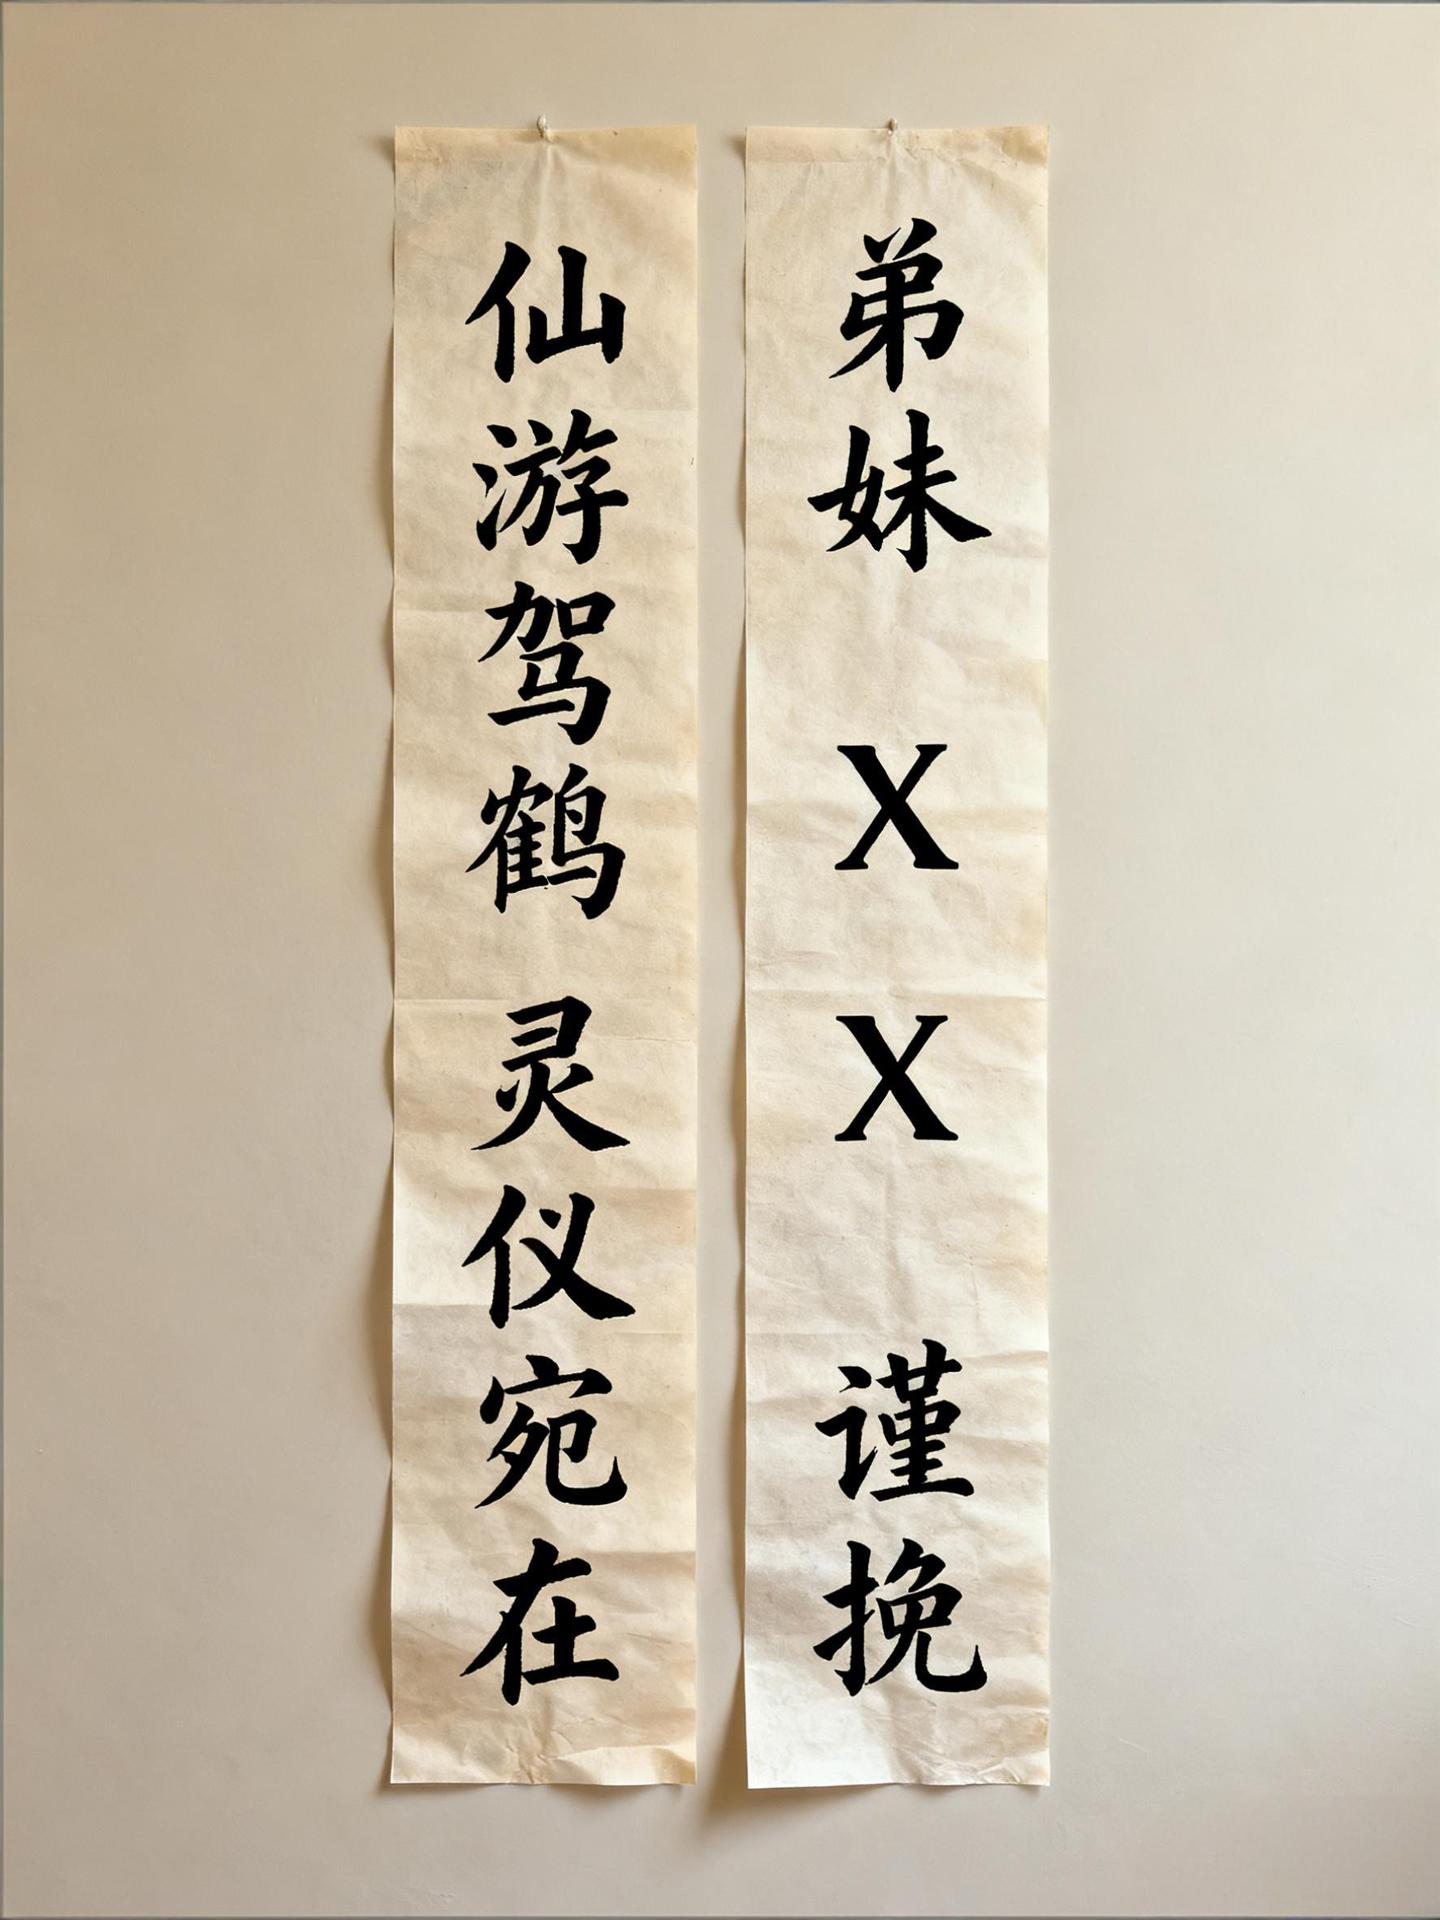 弟妹 X X 谨挽
仙游驾鹤 灵仪宛在